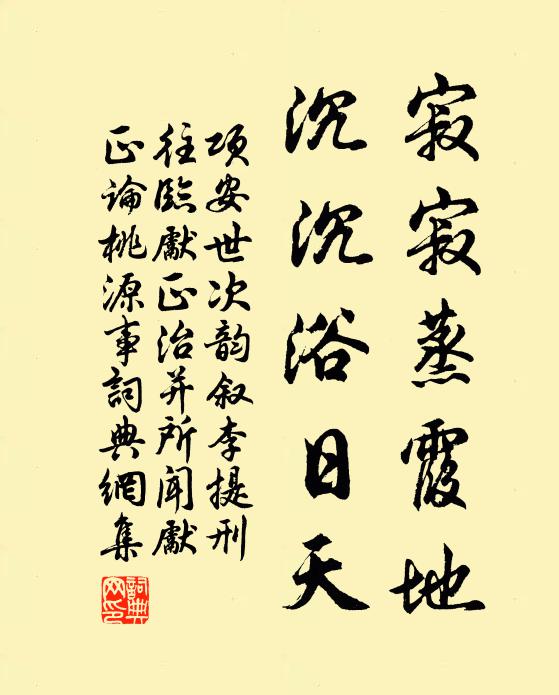 寂寂蒸霞地
沉沉浴日天
项安世次韵叙李提刑
往臨獻正治并所闻獻
正論桃源事詞典網集
詞典网印